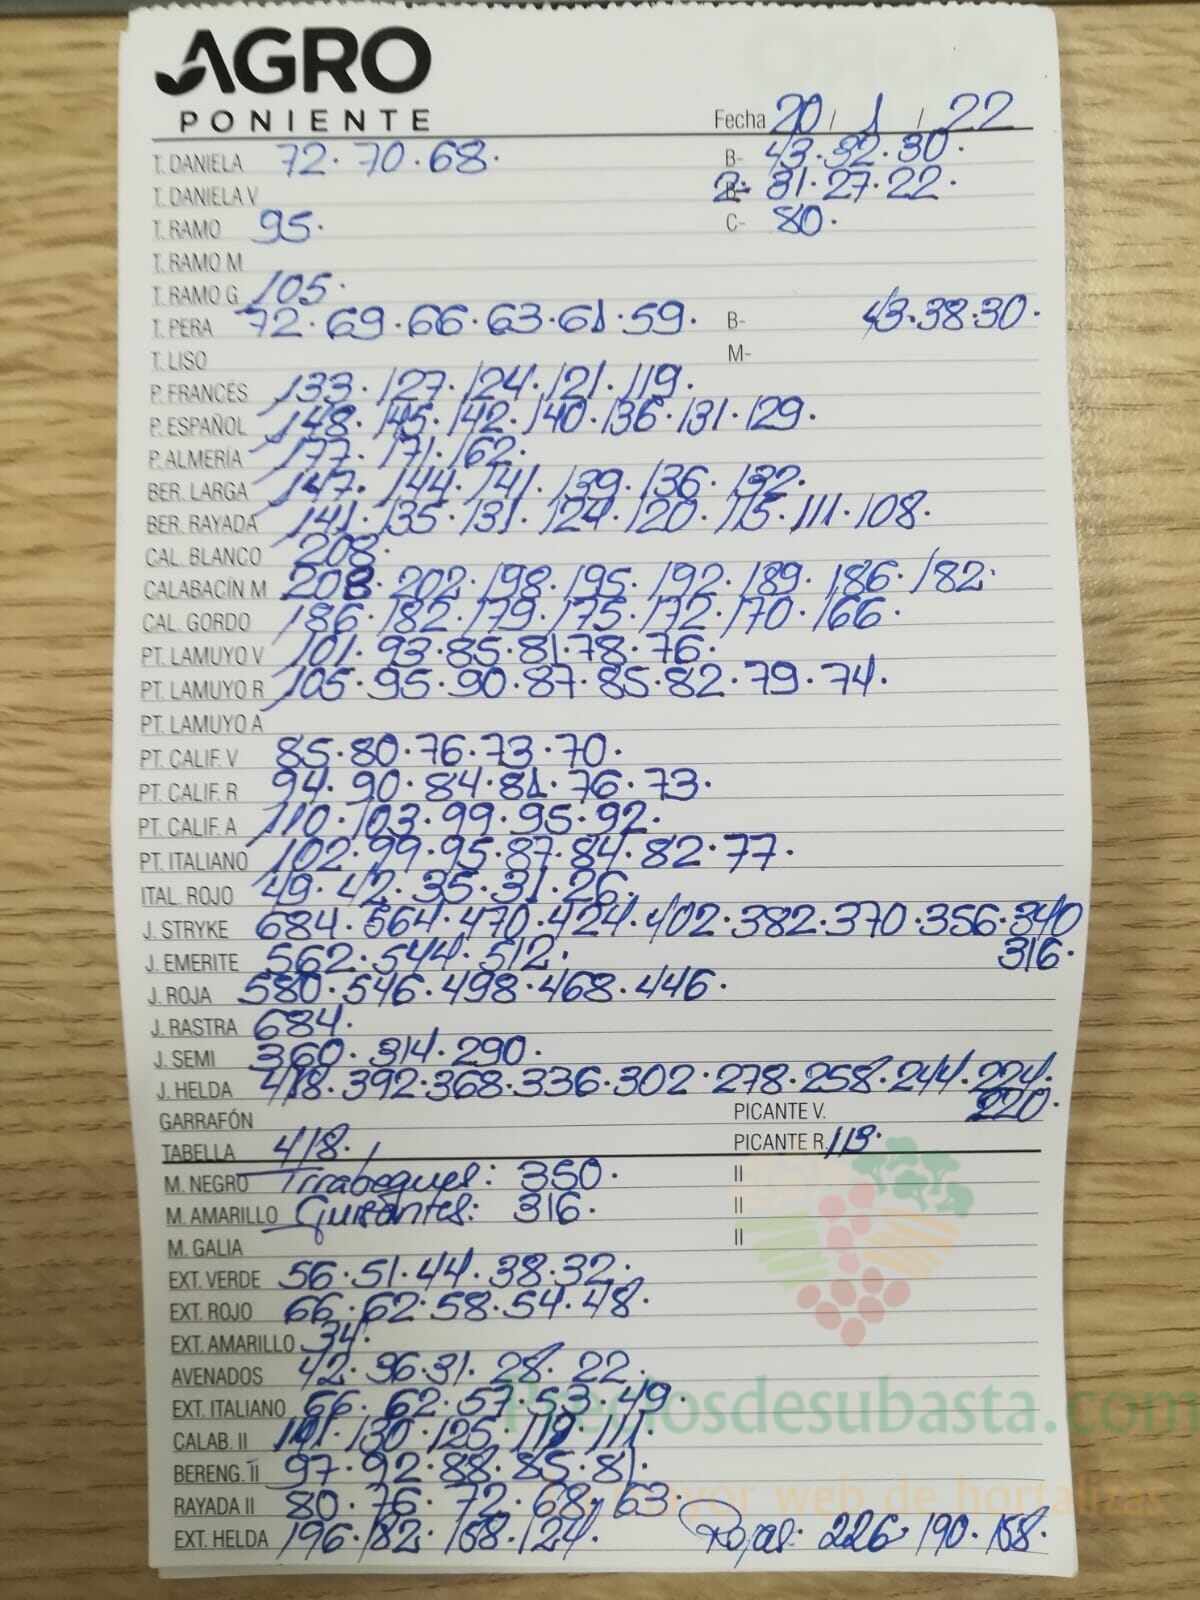 AGRO
PONIENTE
Fecha 20 / 1 / 22
T. DANIELA 72. 70. 68. B- 43. 32. 30.
T. DANIELA V 2- 31. 27. 22.
T. RAMO 95. C- 80.
T. RAMO M
T. RAMO G 105.
T. PERA 72. 69. 66. 63. 61. 59. B- 43. 38. 30.
T. LISO M-
P. FRANCÉS 133. 127. 124. 121. 119.
P. ESPAÑOL 148. 145. 142. 140. 136. 131. 129.
P. ALMERÍA 177. 171. 162.
BER. LARGA 147. 144. 141. 139. 136. 132.
BER. RAYADA 141. 135. 131. 124. 120. 115. 111. 108.
CAL. BLANCO 208.
CALABACÍN M 208. 202. 198. 195. 192. 189. 186. 182.
CAL. GORDO 186. 182. 179. 175. 172. 170. 166.
PT. LAMUYO V 101. 93. 85. 81. 78. 76.
PT. LAMUYO R 105. 95. 90. 87. 85. 82. 79. 74.
PT. LAMUYO A
PT. CALIF. V 85. 80. 76. 73. 70.
PT. CALIF. R 94. 90. 84. 81. 76. 73.
PT. CALIF. A 110. 103. 99. 95. 92.
PT. ITALIANO 102. 99. 95. 87. 84. 82. 77.
ITAL. ROJO 49. 42. 35. 31. 26.
J. STRYKE 684. 564. 470. 424. 402. 382. 370. 356. 340
316.
J. EMERITE 562. 544. 512.
J. ROJA 580. 546. 498. 468. 446.
J. RASTRA 684.
J. SEMI 360. 314. 290.
J. HELDA 418. 392. 368. 336. 302. 278. 258. 244. 224.
220.
GARRAFÓN PICANTE V.
TABELLA 418. PICANTE R. 113.
M. NEGRO Tirabeques: 350. II
M. AMARILLO Guisantes: 316. II
M. GALIA II
EXT. VERDE 56. 51. 44. 38. 32.
EXT. ROJO 66. 62. 58. 54. 48.
EXT. AMARILLO 34.
AVENADOS 42. 36. 31. 28. 22.
EXT. ITALIANO 66. 62. 57. 53. 49.
CALAB. II 141. 130. 125. 119. 111.
BERENG. II 97. 92. 88. 85. 81.
RAYADA II 80. 76. 72. 68. 63.
EXT. HELDA 196. 182. 158. 124. Rojas: 226. 190. 158.
Preciosdesubasta.com
mayor web de hortalizas